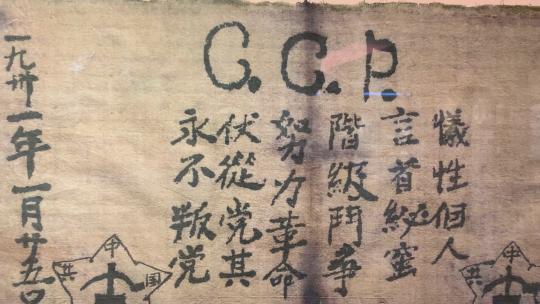 C.C.P.
犧性個人
言首秘蜜
階級鬥争
努力革命
伏從党其
永不叛党
一九卅一年一月廿五日
中
共
国
中
共
国